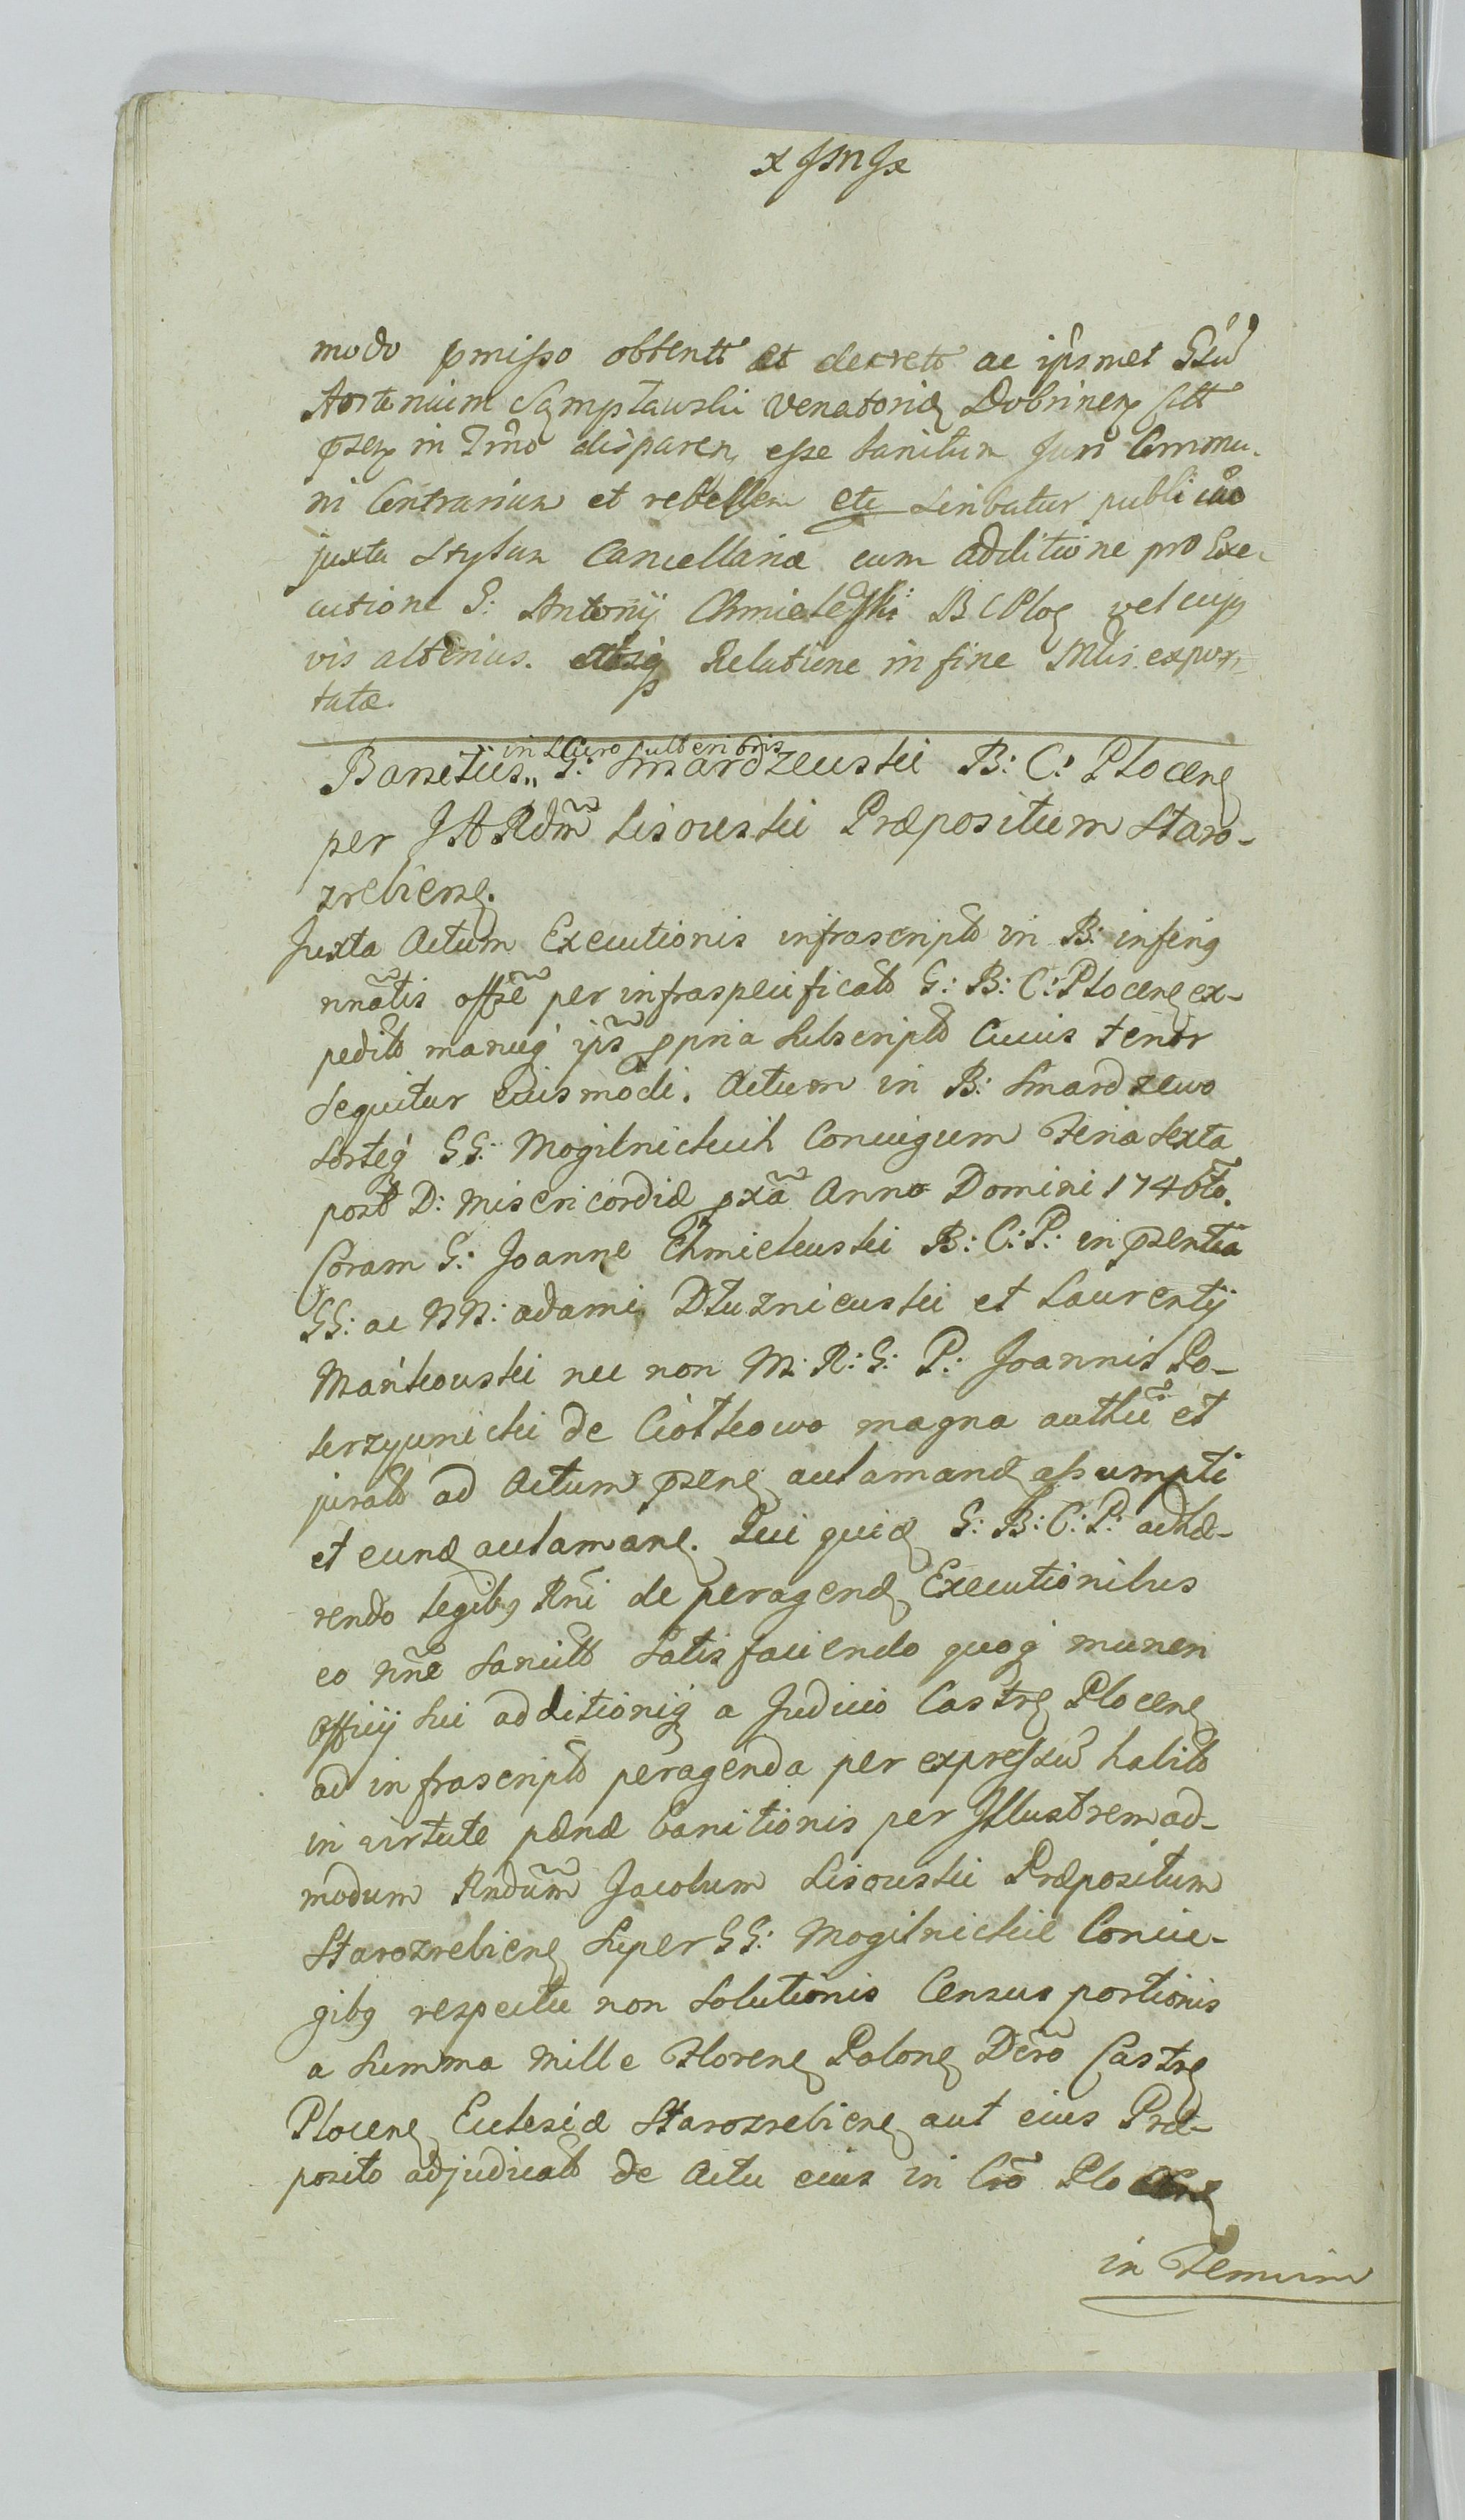 x JMJx
modo pmisso obtentt et decrett ac ipsmet Gsũ
Antonium Sąmpławski Venatorię Dobrinen Citt
pzen in Trno disparen, esse banitum Juri Commu-
ni Contrarium et rebellem etc Scribatur publi
juxta Stylum Cancellariæ cum additione pro Exe-
cutione G: Antonij Chmieleski B C Ploc vel cujq
vis alterius. Relatione in fine Mlis expor-
tatæ.
in Claro subscribris
Banitus G: Smardzeuski B: C: Plocen
per JARdm Lisouski Præpositum Staro-
zrebien.
Juxta Actum Executionis infrascript in B: inferiq
nnatis offse per infraspecificat G: B: C: Plocen ex-
pedit manuq ips ppria Subscript Cuius tenor
Sequitur eiusmodi. Actum in B: Smardzewo
Sorteq GG: Mogilnickich Coniugum Feria Sexta
post D: Misericordiæ pxa Anno Domini 1746to.
Coram G: Joanne Chmieleuski B: C: P: in pzentia
GG: ac NN: adami Dłuznieuski et Laurentij
Mańkouski nec non M: R: G: P: Joannis Po-
krzyunicki de Ciółkowo magna auttu et
jurat ad Actum pzen aulamand assumpti
et eund aulaman. Qui quid G: B: C: P: adhæ-
rendo legibq Rni de peragend Executionibus
eo nne Sancit Satisfaciendo quoq muneri
officij Sui additioniq a Judicio Castr Plocen
ad infrascript peragenda per expressũ habit
in virtute pænæ banitionis per Illustrem ad-
modum Rndum Jacobum Lisouski Præpositum
Starozrebien Super GG: Mogilnickie Coniu-
gibq respectu non Solutionis Census portionis
a Summa Mille Floren Polon Dcro Castr
Plocen Ecclesiæ Starozrebien aut eius Præ-
posito adjudicat de Actu eius in Cro Plocen
in Termin